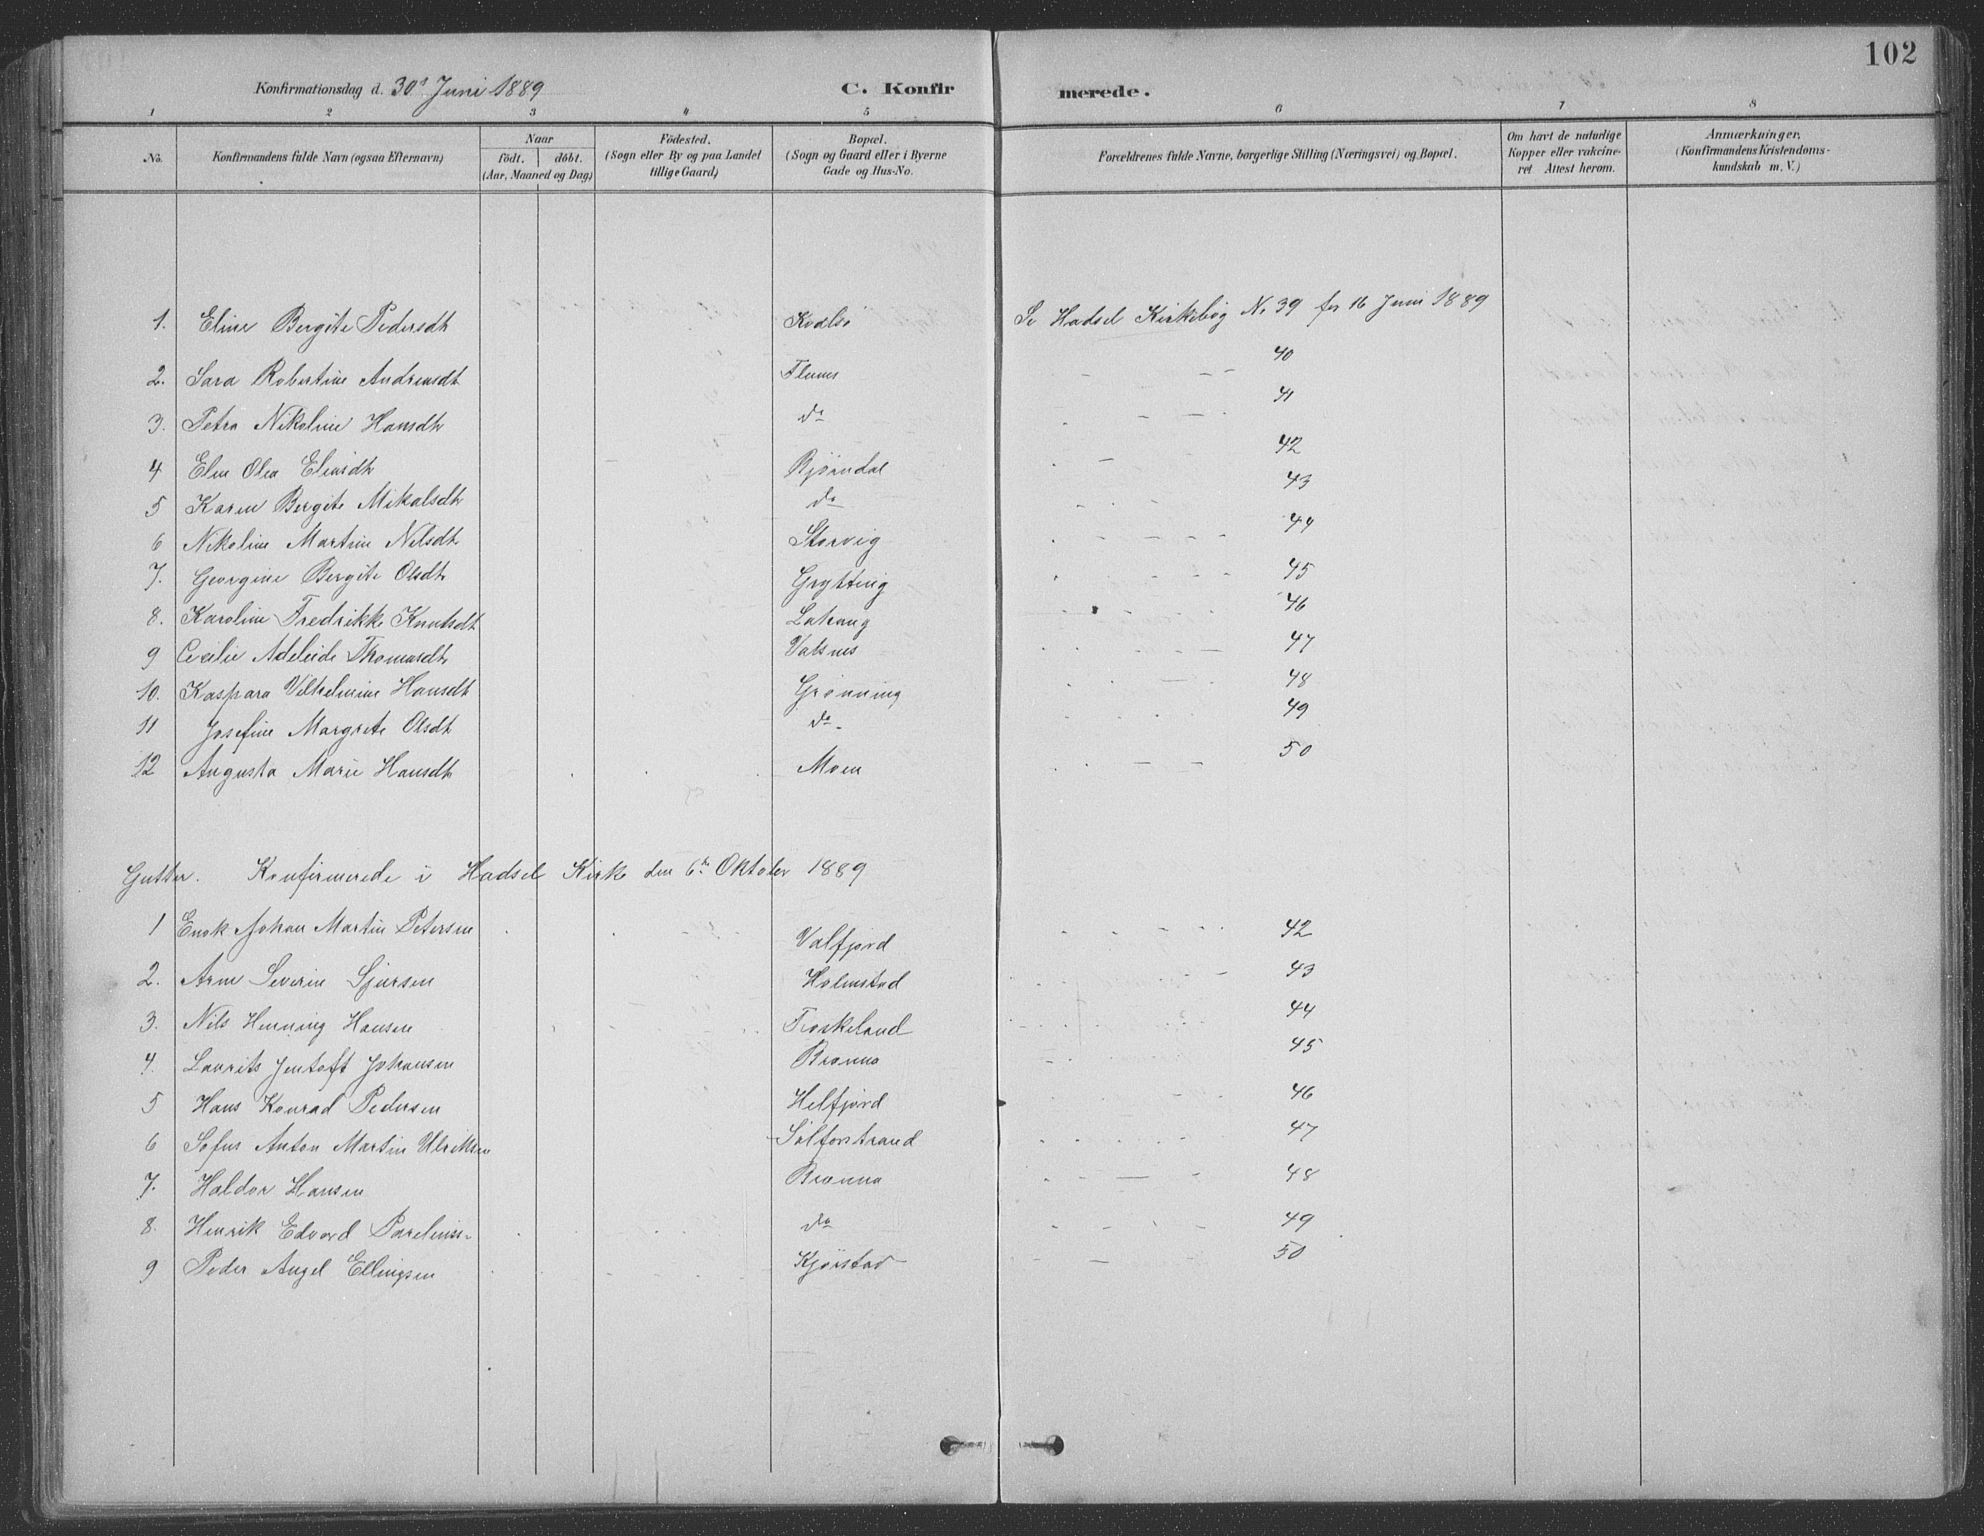 102
Konfirmationsdag d. 30te Juni 1889 C. Konfirmerede.
1 2 3 4 5 6 7 8
No. Konfirmandens fulde Navn (ogsaa Efternavn) Naar födt. döbt. (Aar, Maaned og Dag) Födested. (Sogn eller By og paa Landet tillige Gaard) Bopæl. (Sogn og Gaard eller i Byerne Gade og Hus-No. Forældrenes fulde Navne, borgerlige Stilling (Næringsvei) og Bopæl. Om havt de naturlige Kopper eller vakcineret Attest herom. Anmærkninger. (Konfirmandens Kristendomskundskab m. V.)
1. Eline Bergite Pedersdt Kvalsö Se Hadsel Kirkebog No 39 for 16 Juni 1889
2. Sara Robertine Andreasdt Flunes - - - 40
3. Petra Nikoline Hansdt do - - - 41
4 Elen Olea Eliasdt Bjørndal - - 42
5 Karen Bergite Mikalsdt do - - - 43
6 Nikoline Martine Nilsdt Storvig - - - 44
7. Georgine Bergite Olsdt Grytting - - - 45
8. Karoline Fredrikke Knutsdt Latrang - - - 46
9 Cecilie Adeleide Thomasdt Vatsnes - - - 47
10. Kaspara Vilhelmine Hansdt Grønning - - - 48
11 Josefine Margrete Olsdt do - - - 49
12 Augusta Marie Hansdt Moen - - - 50
Gutter. Konfirmerede i Hadsel Kirke den 6te Oktober 1889
1 Enok Johan Martin Petersen Valfjord - - - 42
2. Arne Severin Sjursen Holmstad - - - 43
3. Nils Henning Hansen Froskeland - - - 44
4. Laurits Jentoft Johansen Brønna - - - 45
5 Hans Konrad Pedersen Helfjord - - - 46
6 Sofus Anton Martin Ulriksen Sølforstrand - - - 47
7. Haldor Hansen Brønna - - - 48
8. Henrik Edvard Parelius- do - - 49
9 Peder Angel Ellingsen Kjørstad - - 50